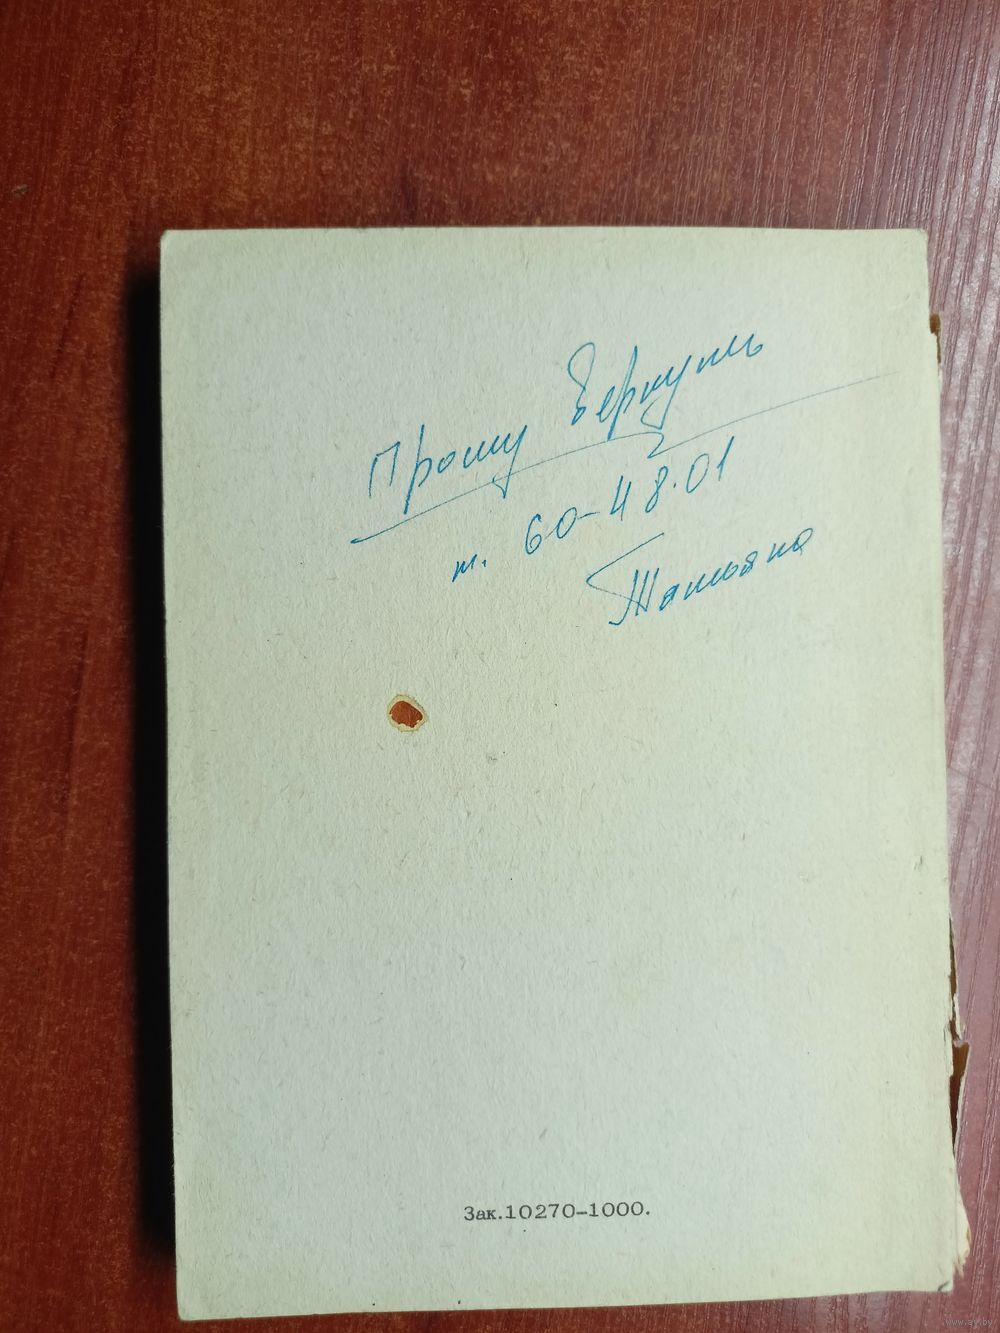 Прошу вернуть
т. 60-48.01
Татьяна
Зак.10270-1000.
www.ay.by